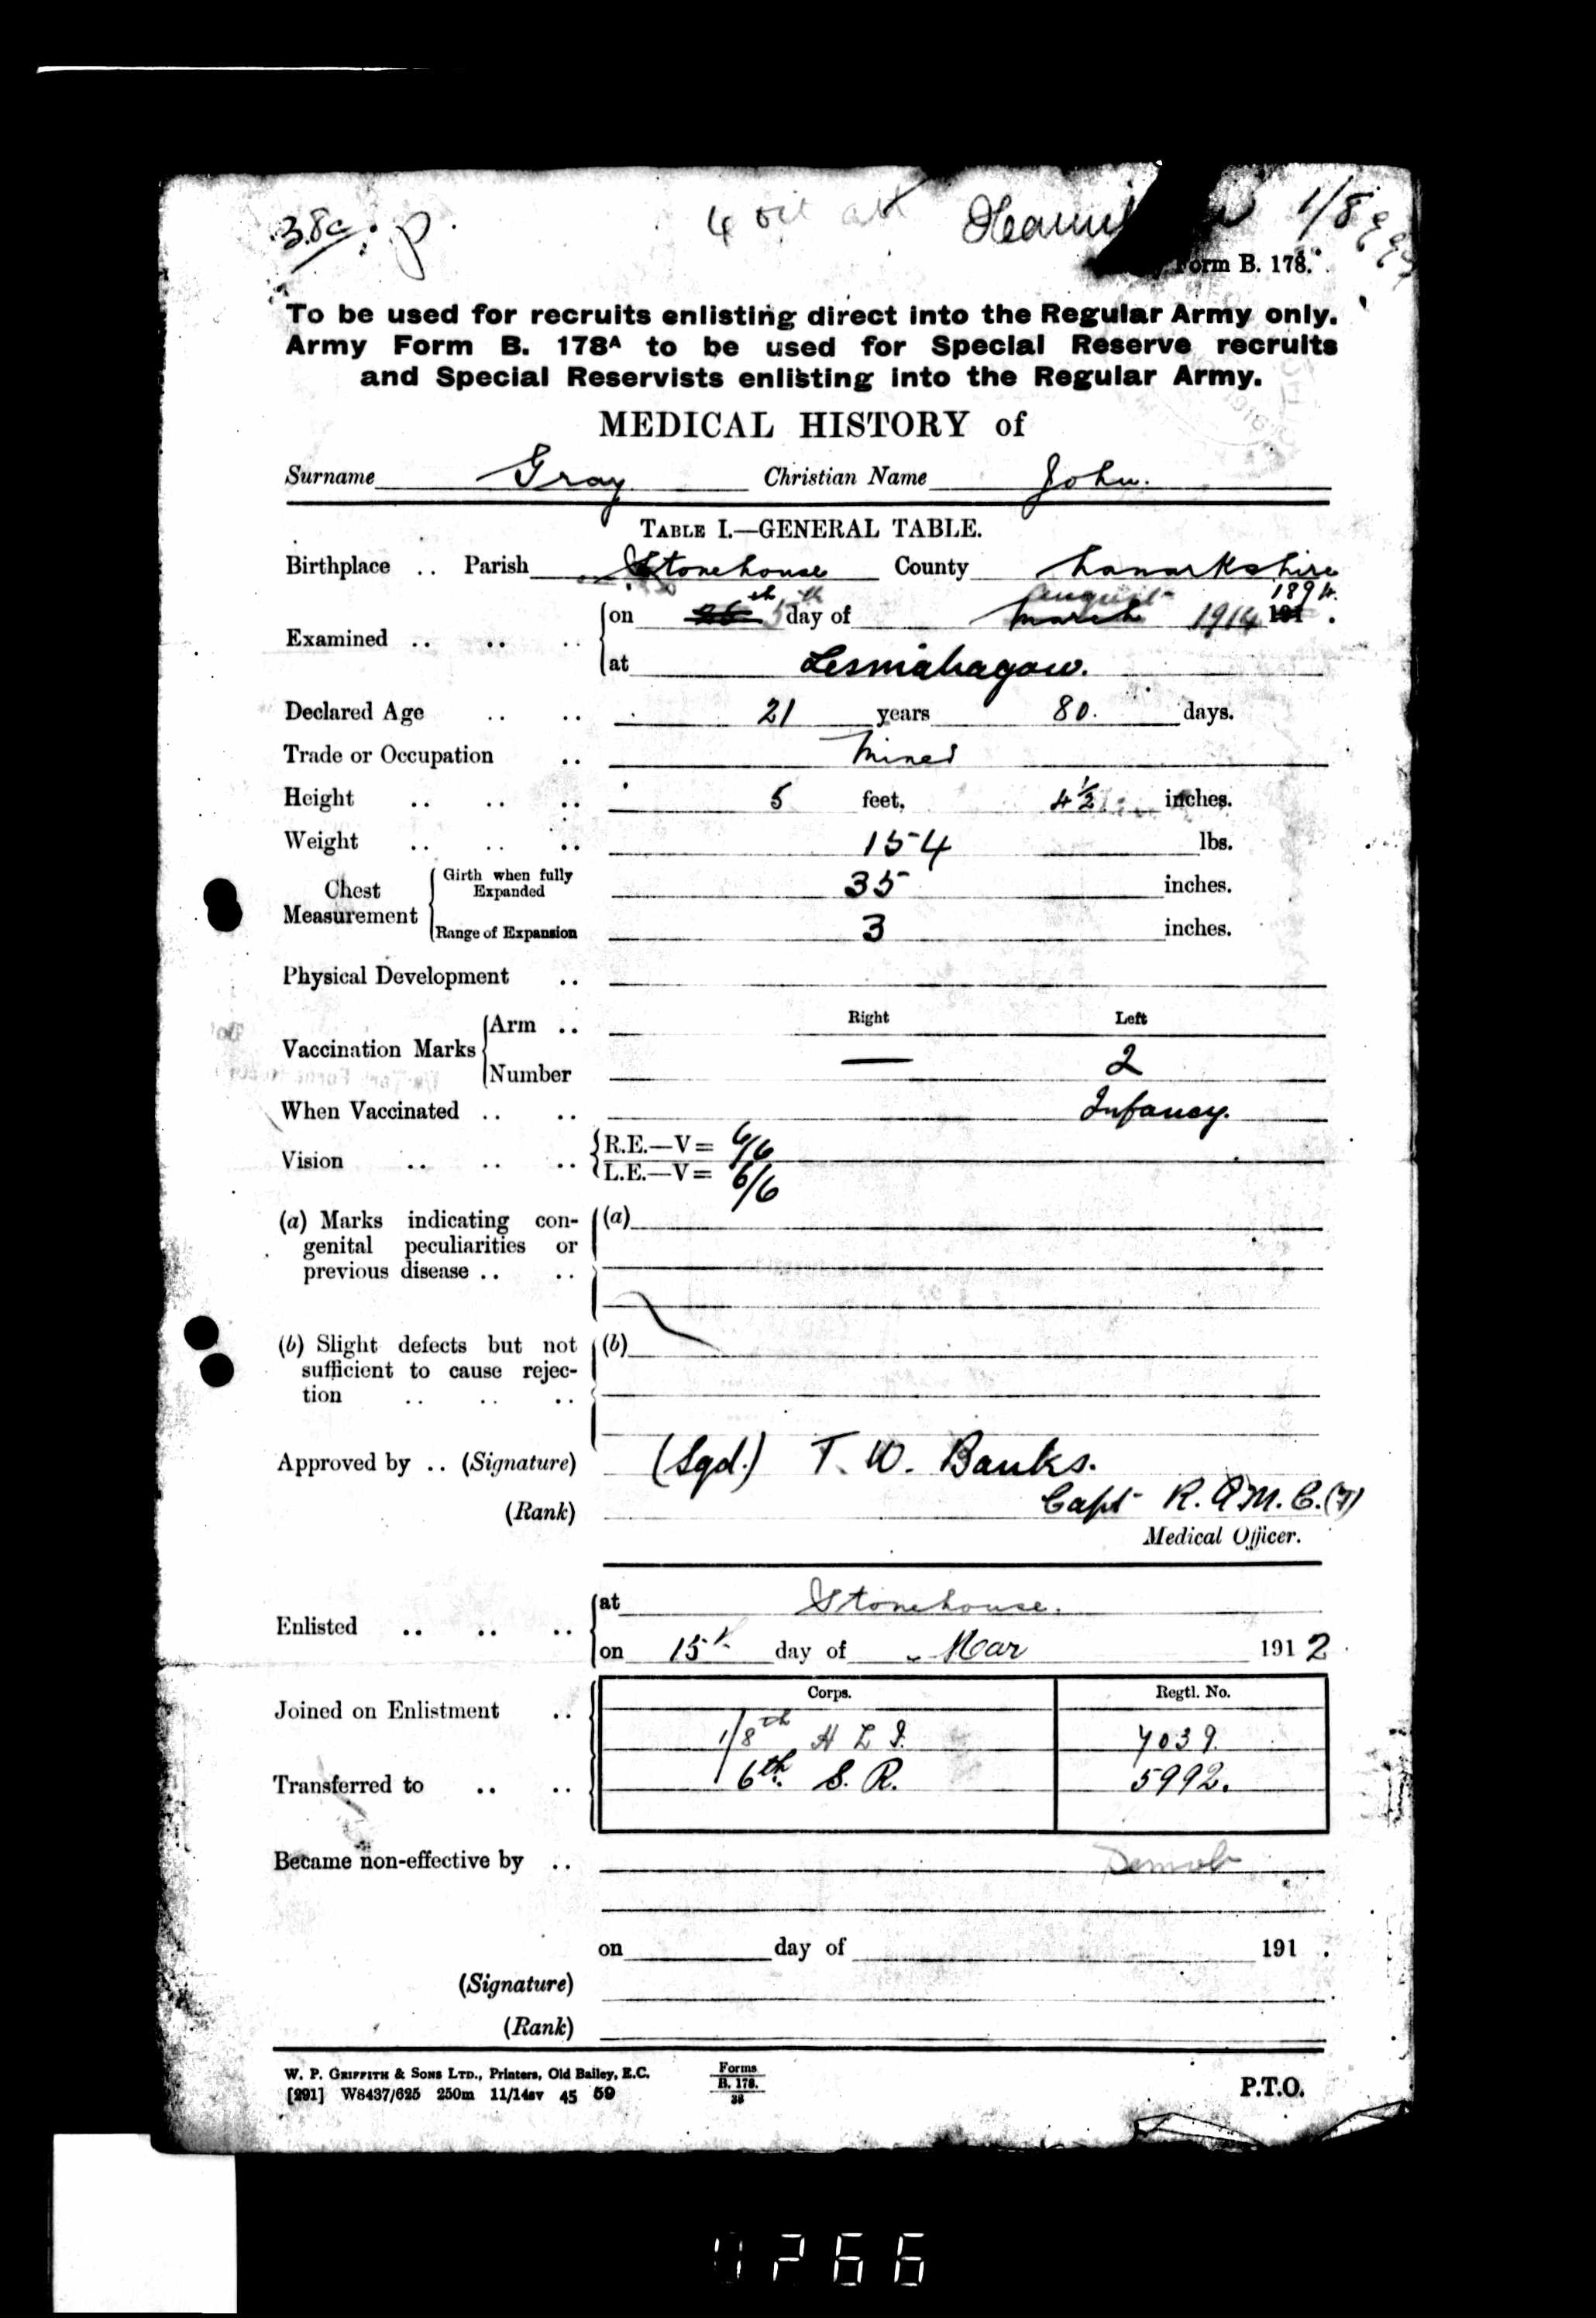 38a. p.
4
1/8
Form B. 178.
To be used for recruits enlisting direct into the Regular Army only.
Army Form B. 178A to be used for Special Reserve recruits
and Special Reservists enlisting into the Regular Army.
MEDICAL HISTORY of
Surname Gray Christian Name John.
TABLE I.—GENERAL TABLE.
Birthplace .. Parish Stonehouse County Lanarkshire
august 1894.
Examined .. .. .. on 26th 5th day of march 1914 191 .
at Lesmahagow.
Declared Age .. .. 21 years 80. days.
Trade or Occupation .. Miner
Height .. .. .. 5 feet, 4½ inches.
Weight .. .. .. 154 lbs.
Chest Measurement Girth when fully Expanded 35 inches.
Range of Expansion 3 inches.
Physical Development ..
Right Left
Vaccination Marks Arm ..
Number — 2
When Vaccinated .. .. Infancy.
Vision .. .. .. R.E.—V= 6/6
L.E.—V= 6/6
(a) Marks indicating con- (a)
genital peculiarities or
previous disease .. ..
(b) Slight defects but not (b)
sufficient to cause rejec-
tion .. .. ..
Approved by .. (Signature) (Sgd.) T. W. Banks.
(Rank) Capt R.A.M.C.(T)
Medical Officer.
Enlisted .. .. .. at Stonehouse.
on 15th day of Mar 1912.
Corps. Regtl. No.
Joined on Enlistment .. 1/8th H L I. 7039.
Transferred to .. .. 6th S. R. 5992.
Became non-effective by .. Demob
on day of 191 .
(Signature)
(Rank)
W. P. GRIFFITH & SONS LTD., Printers, Old Bailey, E.C. Forms
[291] W8437/625 250m 11/14sv 45 59 B. 178.
38
P.T.O.
0266